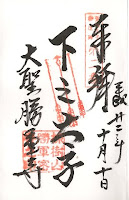 奉拝
平成廿二年
十月十日
下之太子
大聖勝軍寺